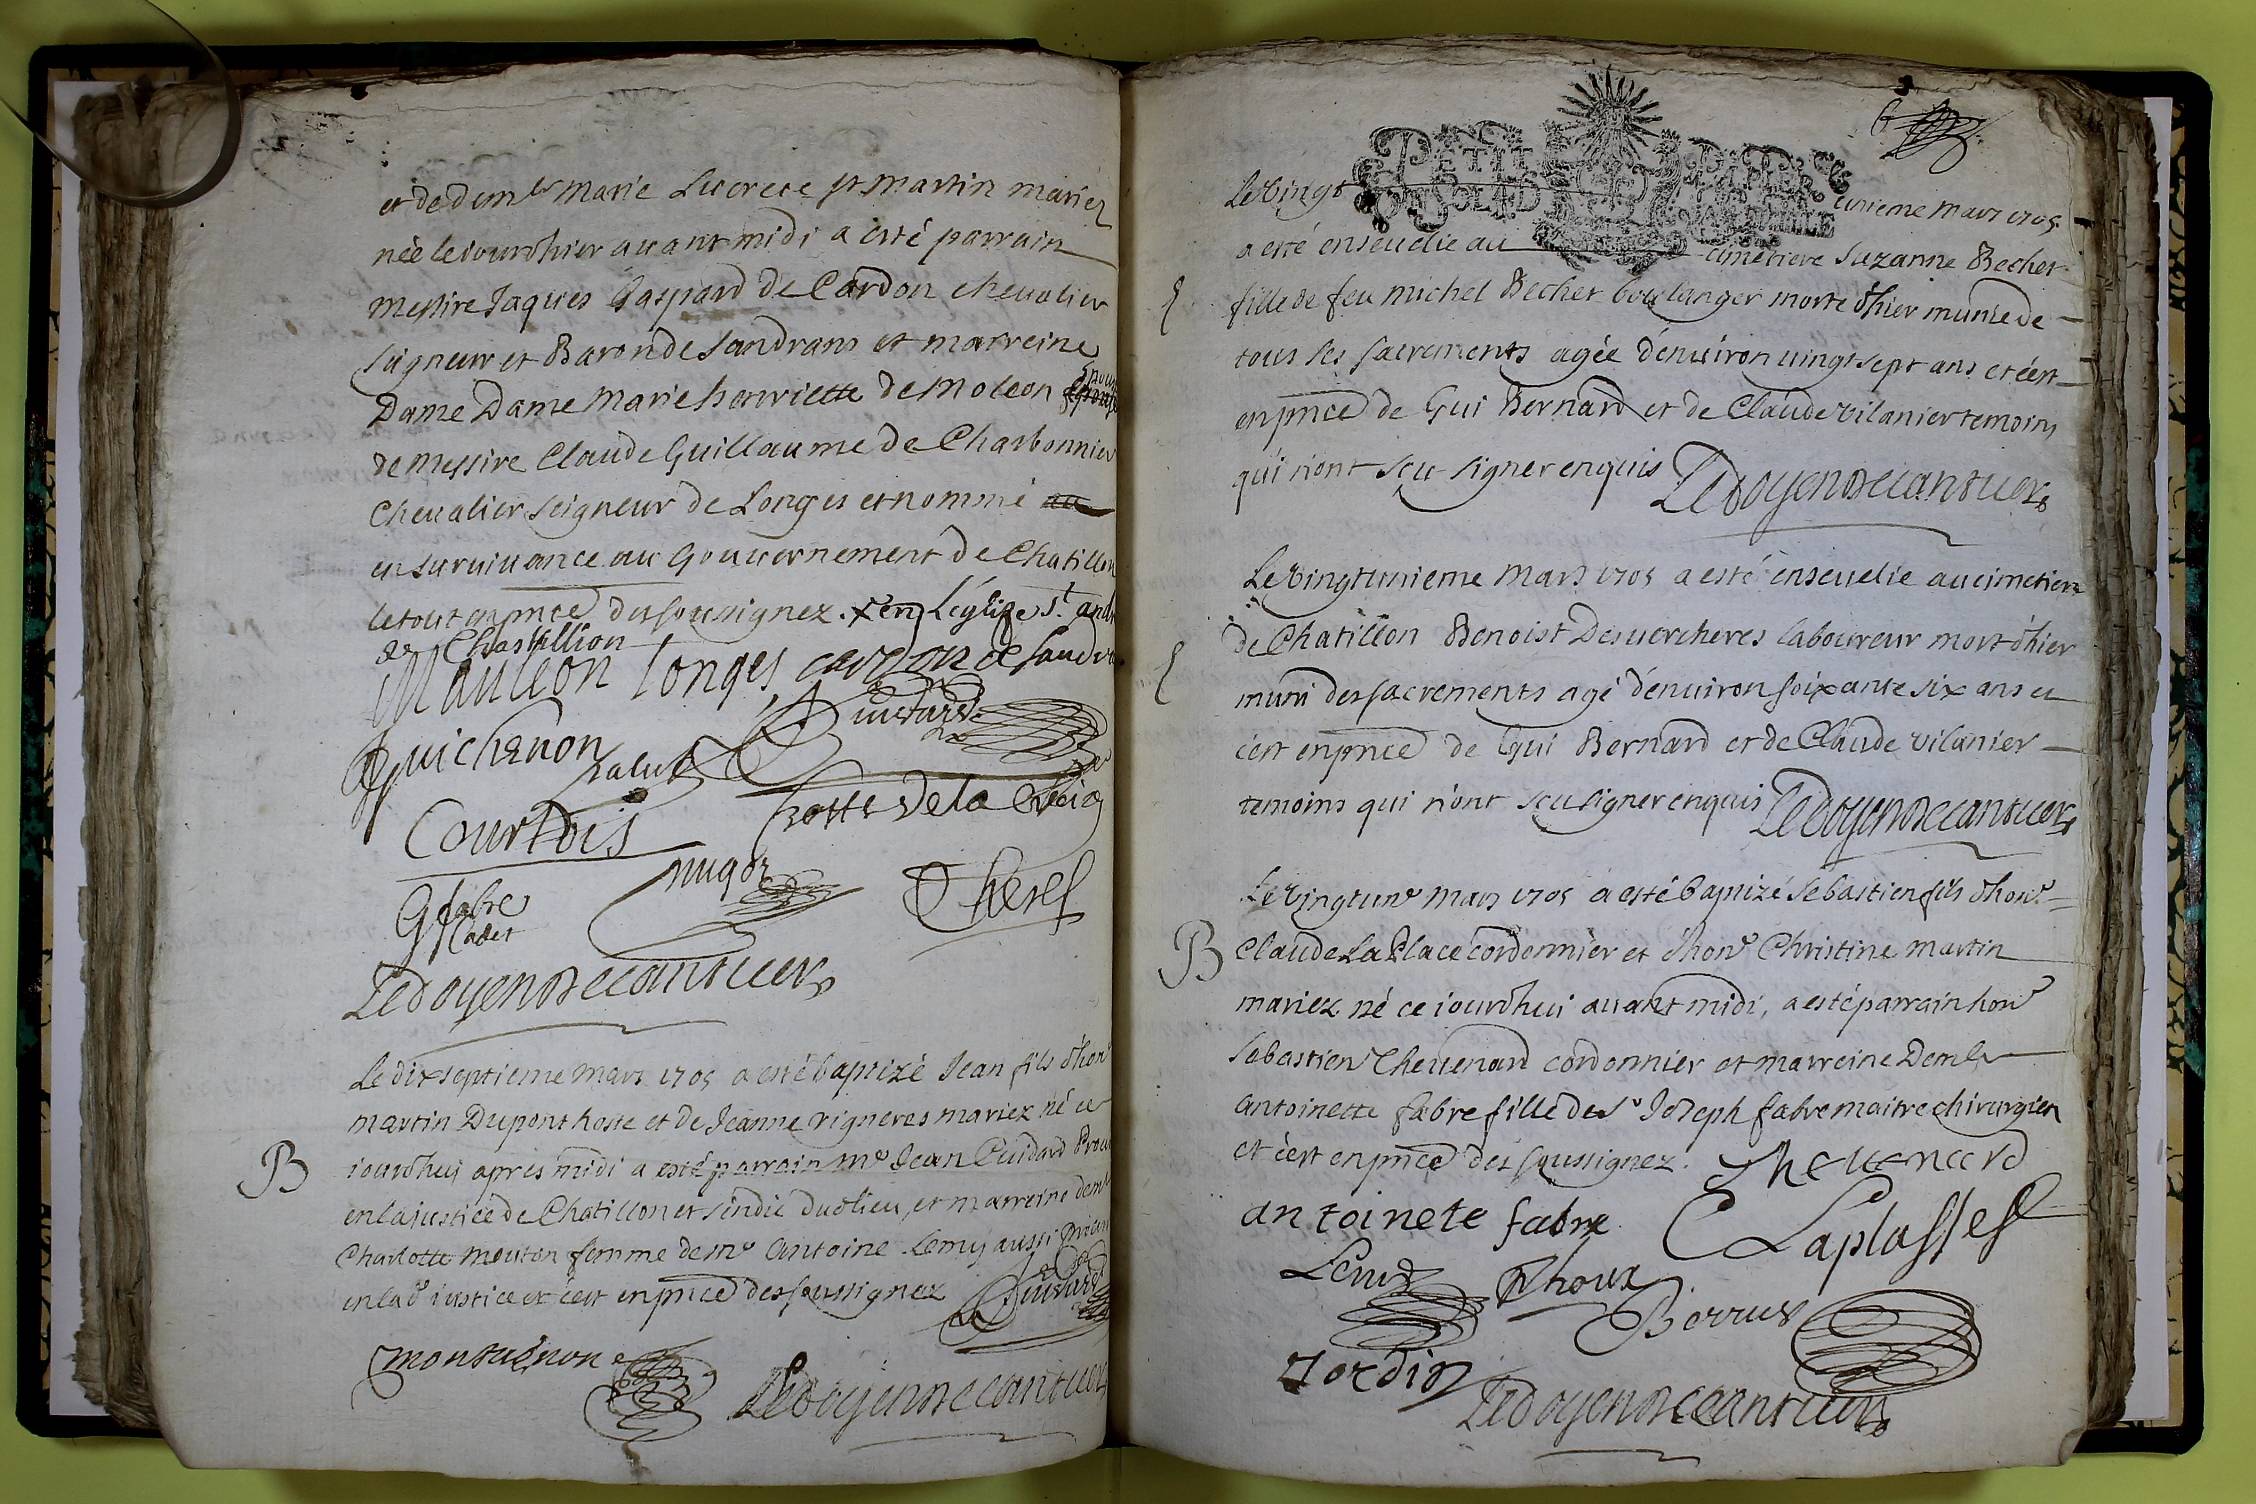 et de dem.le Marie Lucrece st Martin mariez
née le jourdhier avant midi a esté parrain
Messire Jaques Gaspard de Cardon chevalier
seigneur et Baron de Sandrans et marreine
Dame Dame Marie henriette de Moleon epouse
de Messire Claude Guillaume de Charbonnier
Chevalier seigneur de Longes et nommé au
en survivance au Gouvernement de Chatillon
le tout en pnce des soussignez. x en L'église st. andré
de Chastillion
Mauleon longes cardon de sandrans
Guichenon
Courtois
hoste de la
G fabre
Cadet
Cheref
Ledoyen decantuers
Le dix septieme mars 1705 a esté baptizé Jean fils d'hon.
martin Dupont hoste et de Jeanne vigneres mariez né ce
B
jourdhuy apres midi a esté parrain me. Jean Cuidard Procu
en la justice de Chatillon et sindic dud. lieu, et marreine dem.
Charlotte mouton femme de me. Antoine Lemy aussi procur
en lad. justice et c'est en pnce des soussignez
monsuenon
Ledoyen decantuers
PETIT PAPIER
Le vingt unieme mars 1705
a esté ensevelie au cimetiere Suzanne Becher
fille de feu michel Becher boulanger morte d'hier munie de
tous ses sacrements agée d'environ vingt sept ans et c'est
en pnce de Gui Bernard et de Claude vilanier temoins
qui n'ont sçu signer enquis Ledoyen decantuers
Le vingt unieme Mars 1705 a esté ensevelie au cimetiere
de Chatillon Benoist Desvercheres laboureur mort d'hier
muni des sacrements agé d'environ soixante six ans et
c'est en pnce de Gui Bernard et de Claude vilanier
temoins qui n'ont sçu signer enquis Ledoyen decantuers
Le vingt une mars 1705 a esté baptizé Sebastien fils d'hon.
B
Claude La Place cordonnier et d'hon. Christine martin
mariez né ce jourdhui avant midi, a esté parrain hon.
Sebastien Chevenard cordonnier et marreine Demle
antoinette fabre fille de sr. Joseph fabre maitre chirurgien
et c'est en pnce des soussignez. Chevenard
antoinete fabre
Laplasse
Lemy
Rhoux
Borrus
Jordin
Ledoyen decantuers